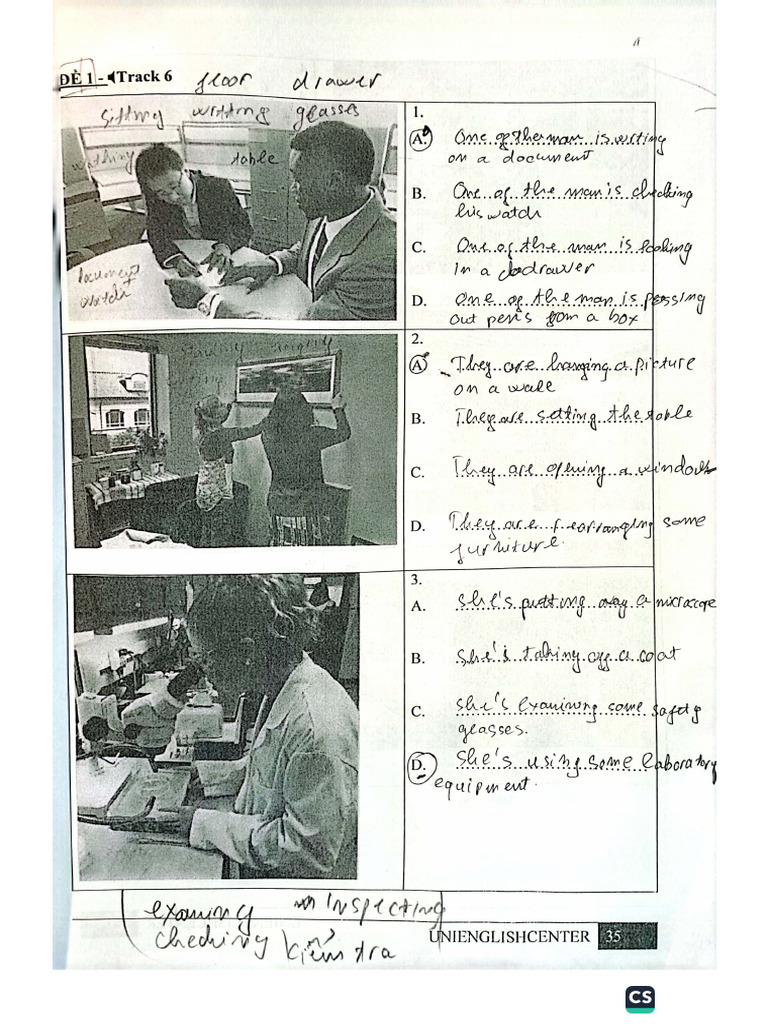 ĐỀ 1 - Track 6 floor drawer
sitting writting glasses
wathing table
document
watch
1.
A. One of the man is writing
on a document
B. One of the man is checking
his watch
C. One of the man is looking
in a drawer
D. One of the man is passing
out pens from a box
standing hanging
2.
A. They are hanging a picture
on a wall
B. They are setting the table
C. They are opening a window
D. They are rearranging some
furniture.
3.
A. She's putting away a microscope
B. She's taking off a coat
C. She's examining some safety
glasses.
D. She's using some laboratory
equipment.
examing inspecting
cheching kiểm tra
UNIENGLISHCENTER 35
CS